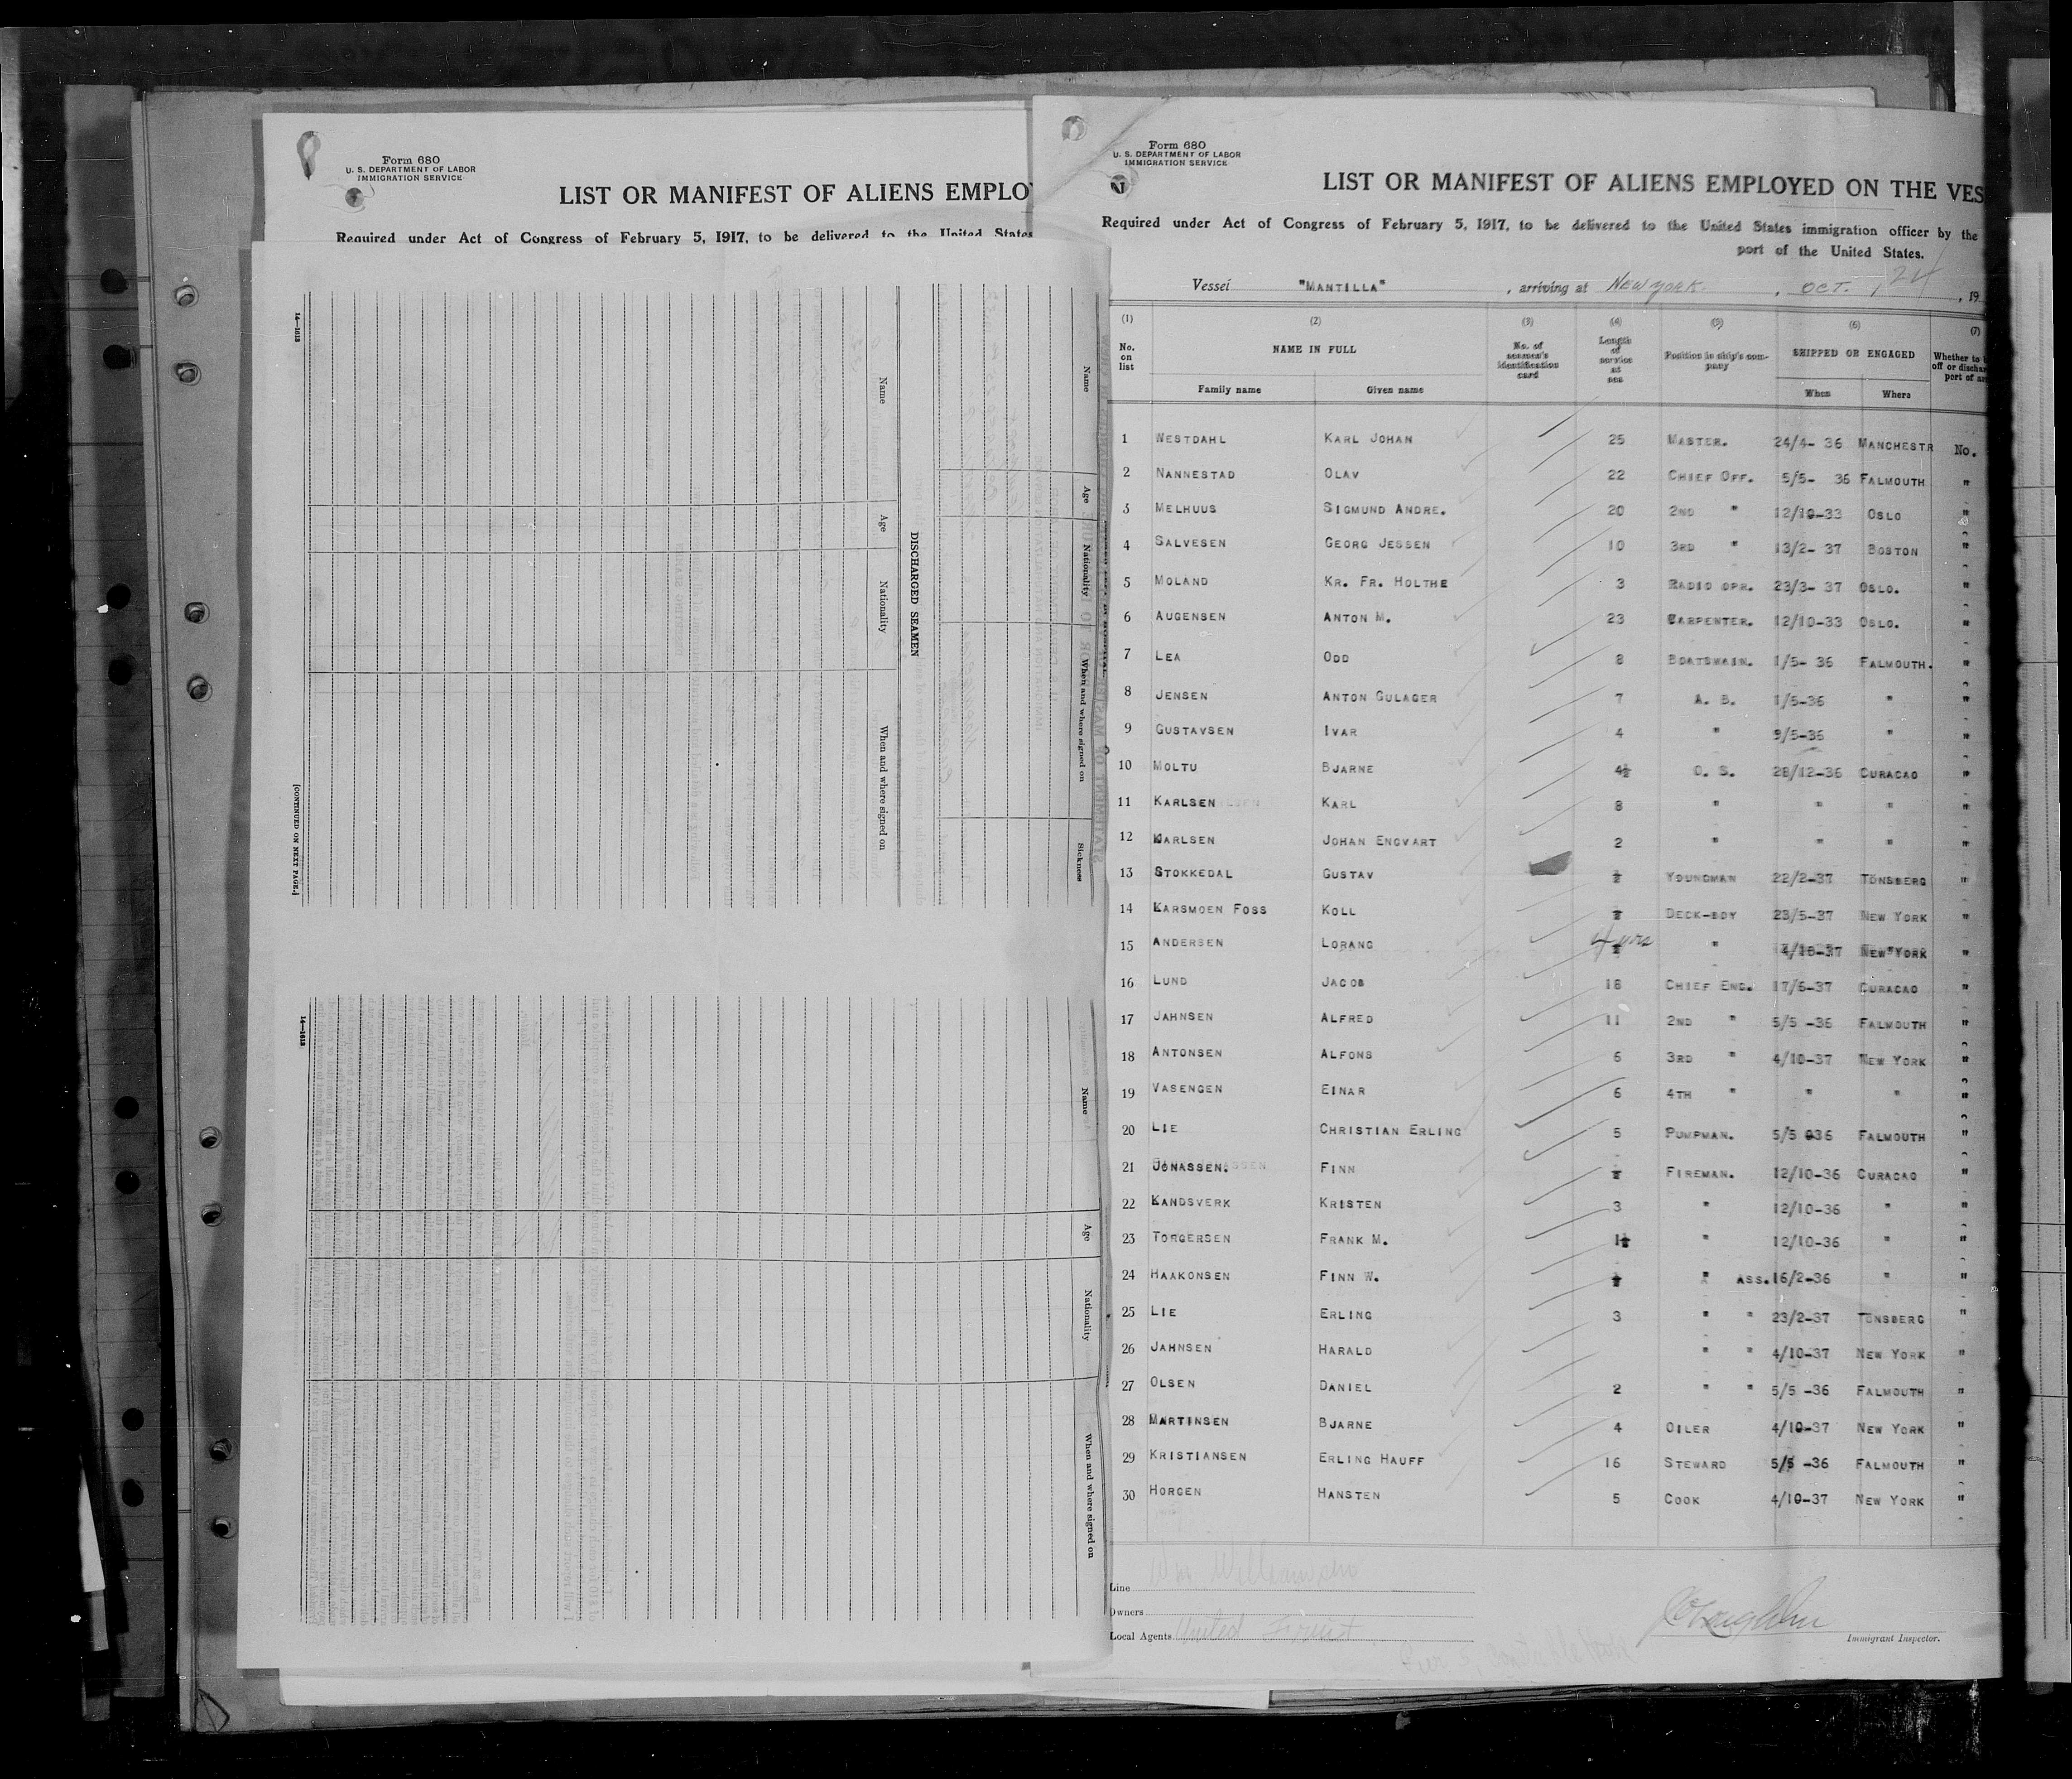 Form 680
U. S. DEPARTMENT OF LABOR
IMMIGRATION SERVICE
LIST OR MANIFEST OF ALIENS EMPLO
Required under Act of Congress of February 5, 1917, to be delivered to the United States
14—1613
[CONTINUED ON NEXT PAGE.]
Name
Age
Nationality
When and where signed on
DISCHARGED SEAMEN
Name
Age
Nationality
When and where signed on
Sickness
14—1613
Name
Age
Nationality
When and where signed on
Form 680
U. S. DEPARTMENT OF LABOR
IMMIGRATION SERVICE
LIST OR MANIFEST OF ALIENS EMPLOYED ON THE VES
Required under Act of Congress of February 5, 1917, to be delivered to the United States immigration officer by the
port of the United States.
Vessel "MANTILLA", arriving at NEW YORK, OCT. 24, 19
(1) (2) (3) (4) (5) (6) (7)
No. on list NAME IN FULL No. of seamen's identification card Length of service at sea Position in ship's company SHIPPED OR ENGAGED Whether to off or dischar port of ar
Family name Given name When Where
1 WESTDAHL KARL JOHAN 25 MASTER. 24/4- 36 MANCHESTR No.
2 NANNESTAD OLAV 22 CHIEF OFF. 5/5- 36 FALMOUTH "
3 MELHUUS SIGMUND ANDRE. 20 2ND " 12/10-33 OSLO "
4 SALVESEN GEORG JESSEN 10 3RD " 13/2- 37 BOSTON "
5 MOLAND KR. FR. HOLTHE 3 RADIO OPR. 23/3- 37 OSLO. "
6 AUGENSEN ANTON M. 23 CARPENTER. 12/10-33 OSLO. "
7 LEA ODD 8 BOATSWAIN. 1/5- 36 FALMOUTH. "
8 JENSEN ANTON GULAGER 7 A. B. 1/5-36 " "
9 GUSTAVSEN IVAR 4 " 9/5-36 " "
10 MOLTU BJARNE 4½ O. S. 28/12-36 CURACAO "
11 KARLSEN KARL 8 " " " "
12 KARLSEN JOHAN ENGVART 2 " " " "
13 STOKKEDAL GUSTAV ½ YOUNGMAN 22/2-37 TÖNSBERG "
14 KARSMOEN FOSS KOLL DECK-BOY 23/5-37 NEW YORK "
15 ANDERSEN LORANG 4 yrs " 4/10-37 NEW YORK "
16 LUND JACOB 18 CHIEF ENG. 17/6-37 CURACAO "
17 JAHNSEN ALFRED 11 2ND " 5/5 -36 FALMOUTH "
18 ANTONSEN ALFONS 6 3RD " 4/10-37 NEW YORK "
19 VASENGEN EINAR 6 4TH " " " "
20 LIE CHRISTIAN ERLING 5 PUMPMAN. 5/5 036 FALMOUTH "
21 JONASSEN. FINN FIREMAN. 12/10-36 CURACAO "
22 KANDSVERK KRISTEN 3 " 12/10-36 " "
23 TORGERSEN FRANK M. 1½ " 12/10-36 " "
24 HAAKONSEN FINN W. " ASS. 16/2-36 " "
25 LIE ERLING 3 " " 23/2-37 TÖNSBERG "
26 JAHNSEN HARALD " " 4/10-37 NEW YORK "
27 OLSEN DANIEL 2 " " 5/5 -36 FALMOUTH "
28 MARTINSEN BJARNE 4 OILER 4/10-37 NEW YORK "
29 KRISTIANSEN ERLING HAUFF 16 STEWARD 5/5 -36 FALMOUTH "
30 HORGEN HANSTEN 5 COOK 4/10-37 NEW YORK "
Line Wm Williamsen
Owners
Local Agents United Fruit
Immigrant Inspector.